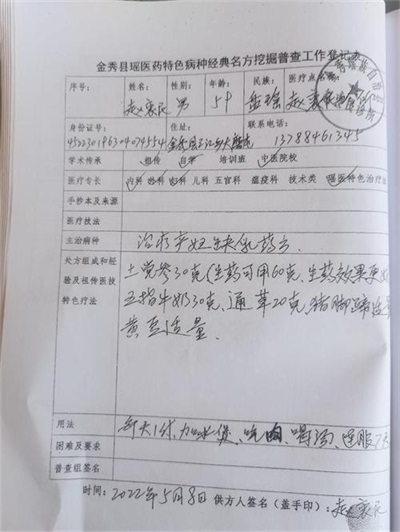 金秀县瑶医药特色病种经典名方挖掘普查工作登记表
序号： 姓名： 性别： 年龄： 民族： 医疗点名称：
男 59 盘瑶
身份证号： 联系电话：
13788461345
学术传承 祖传 自学 培训班 中医院校
医疗专长 内科 外科 妇科 儿科 五官科 瘟疫科 技术类 瑶医特色治疗法
手抄本及来源
医疗技法
主治病种 治疗产妇缺乳药方
处方组成和经 土党参30克(生药可用60克,生药效果更
验及祖传医技 五指牛奶30克、通草20克、猪脚蹄适量
特色疗法 黄豆适量.
用法 每天1剂,加水煲、吃肉、喝汤、连服7天
困难及要求
普查组签名
时间：2022年5月8日 供方人签名（盖手印）：